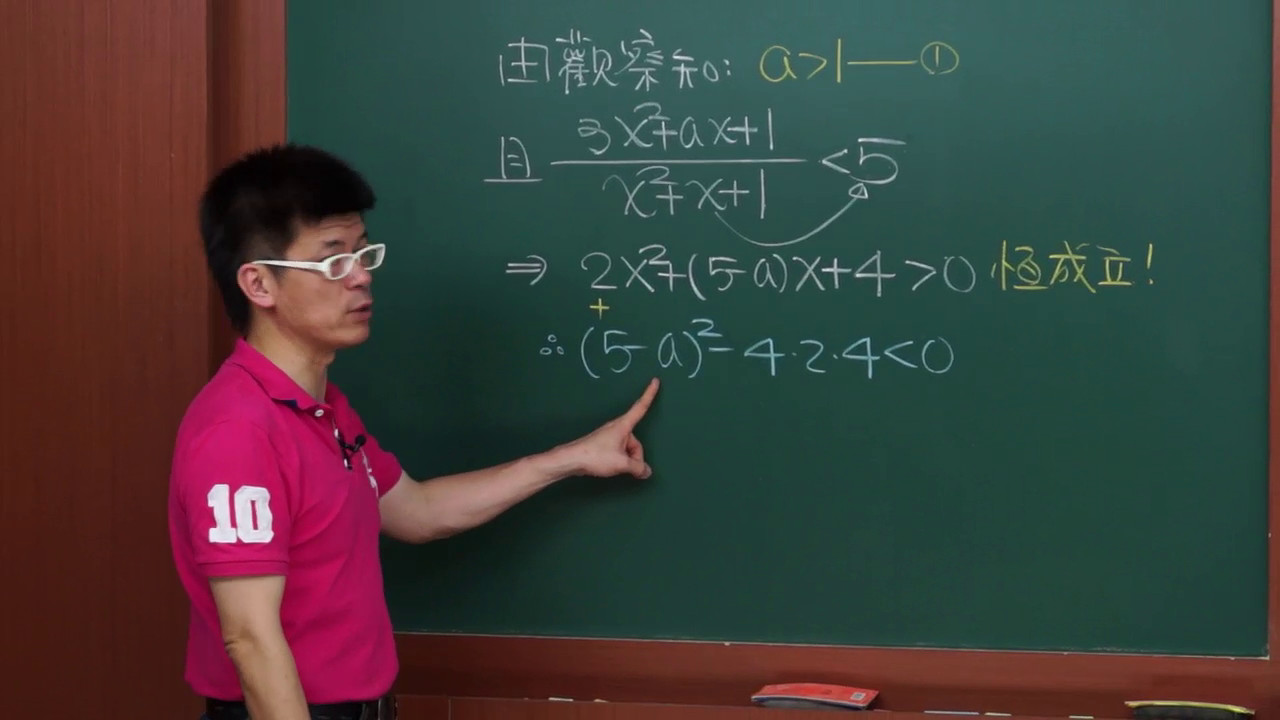 由觀察知: a>1——①
且 (3x²+ax+1)/(x²+x+1) <5
⇒ 2x²+(5-a)x+4>0 恒成立!
+
∴(5-a)²-4·2·4<0
10